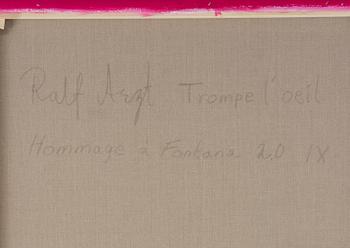 Ralf Arzt Trompe l'oeil
Hommage a Fontana 2.0 IX